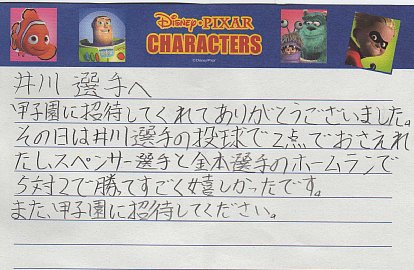 Disney·PIXAR
CHARACTERS
©Disney/Pixar
井川 選手へ
甲子園に招待してくれてありがとうございました。
その日は井川選手の投球で2点でおさえれ
たし、スペンサー選手と金本選手のホームランで
5対2で勝ててすごく嬉しかったです。
また、甲子園に招待してください。